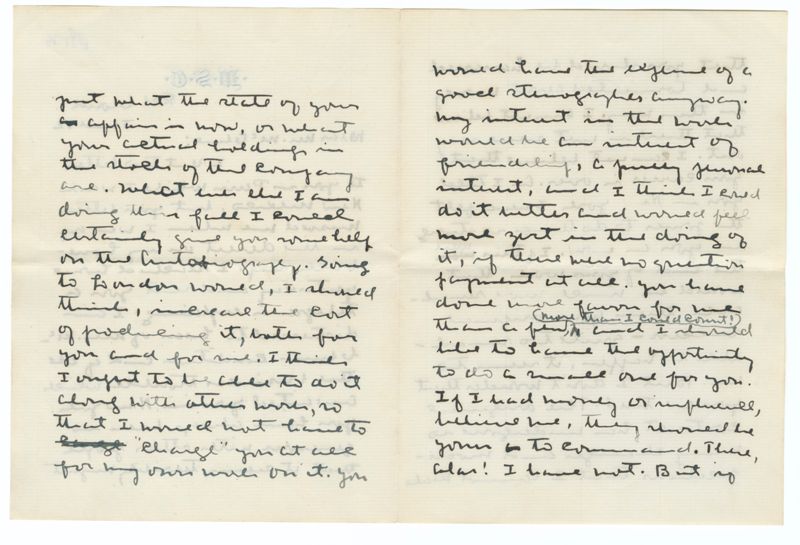 just what the state of your
affairs is now, or what
your actual holdings in
the stocks of the company
are. Whatever else I am
doing this fall I could
certainly give you some help
on the Autobiography. Going
to London would, I should
think, increase the cost
of producing it, both for
you and for me. I think
I ought to be able to do it
along with other work, so
that I would not have to
"charge" you at all
for my own work on it. You
would have the expense of a
good stenographer anyway.
My interest in the work
would be an interest of
friendship, a purely personal
interest, and I think I could
do it better and would feel
more zest in the doing of
it, if there were no question
payment at all. You have
done more favors for me
(more than I could count!)
than a few and I should
like to have the opportunity
to do a small one for you.
If I had money or influence,
believe me, they should be
yours to command. These,
alas! I have not. But if